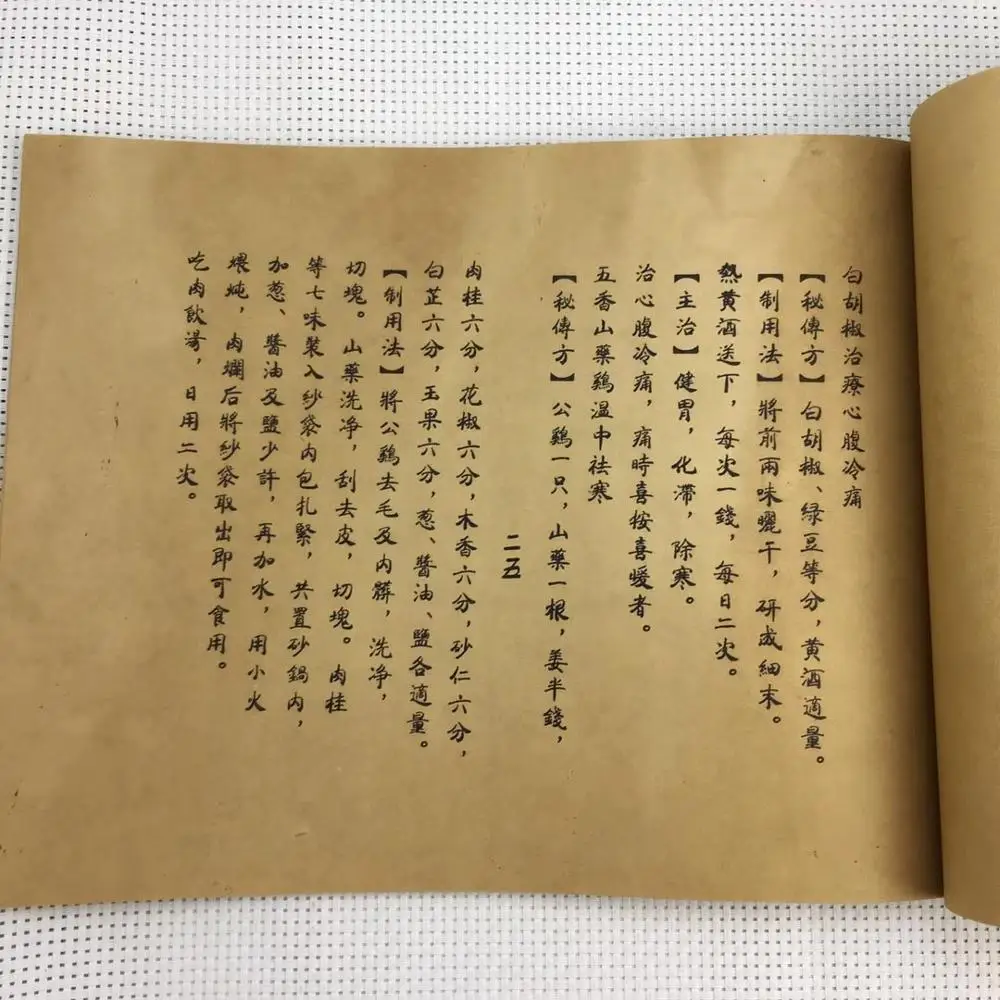 白胡椒治療心腹冷痛
【秘傳方】白胡椒、绿豆等分，黄酒適量。
【制用法】將前兩味曬干，研成細末。
熱黄酒送下，每次一錢，每日二次。
【主治】健胃，化滯，除寒。
治心腹冷痛，痛時喜按喜暖者。
五香山藥鷄温中祛寒
【秘傳方】公鷄一只，山藥一根，姜半錢，
二五
肉桂六分，花椒六分，木香六分，砂仁六分，
白芷六分，玉果六分，葱、醬油、鹽各適量。
【制用法】將公鷄去毛及内髒，洗净，
切塊。山藥洗净，刮去皮，切塊。肉桂
等七味裝入紗袋内包扎緊，共置砂鍋内，
加葱、醬油及鹽少許，再加水，用小火
煨炖，肉爛后將紗袋取出即可食用。
吃肉飲湯，日用二次。